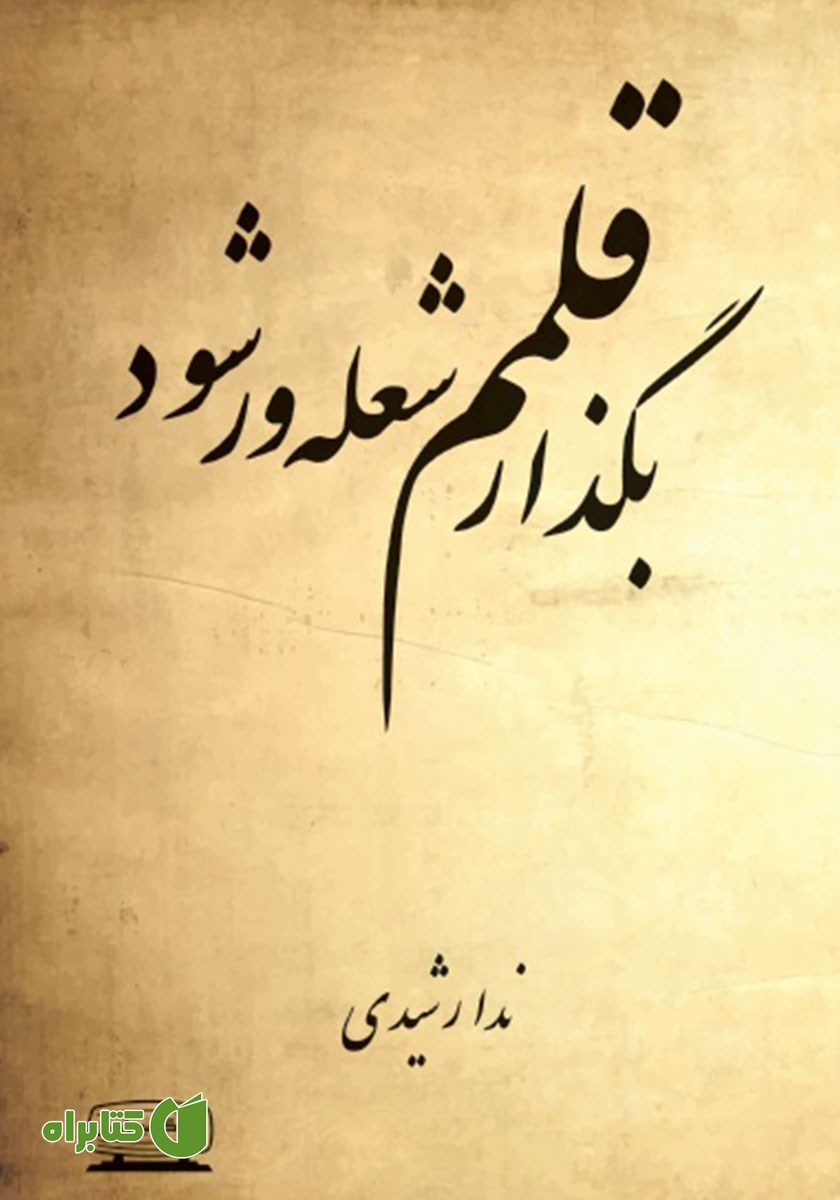 بگذار قلمم شعله ور شود
ندا رشیدی
کتابراه